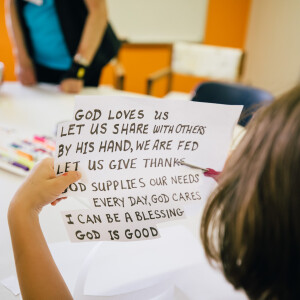 GOD LOVES US
LET US SHARE WITH OTHERS
BY HIS HAND, WE ARE FED
LET US GIVE THANKS
GOD SUPPLIES OUR NEEDS
EVERY DAY, GOD CARES
I CAN BE A BLESSING
GOD IS GOOD